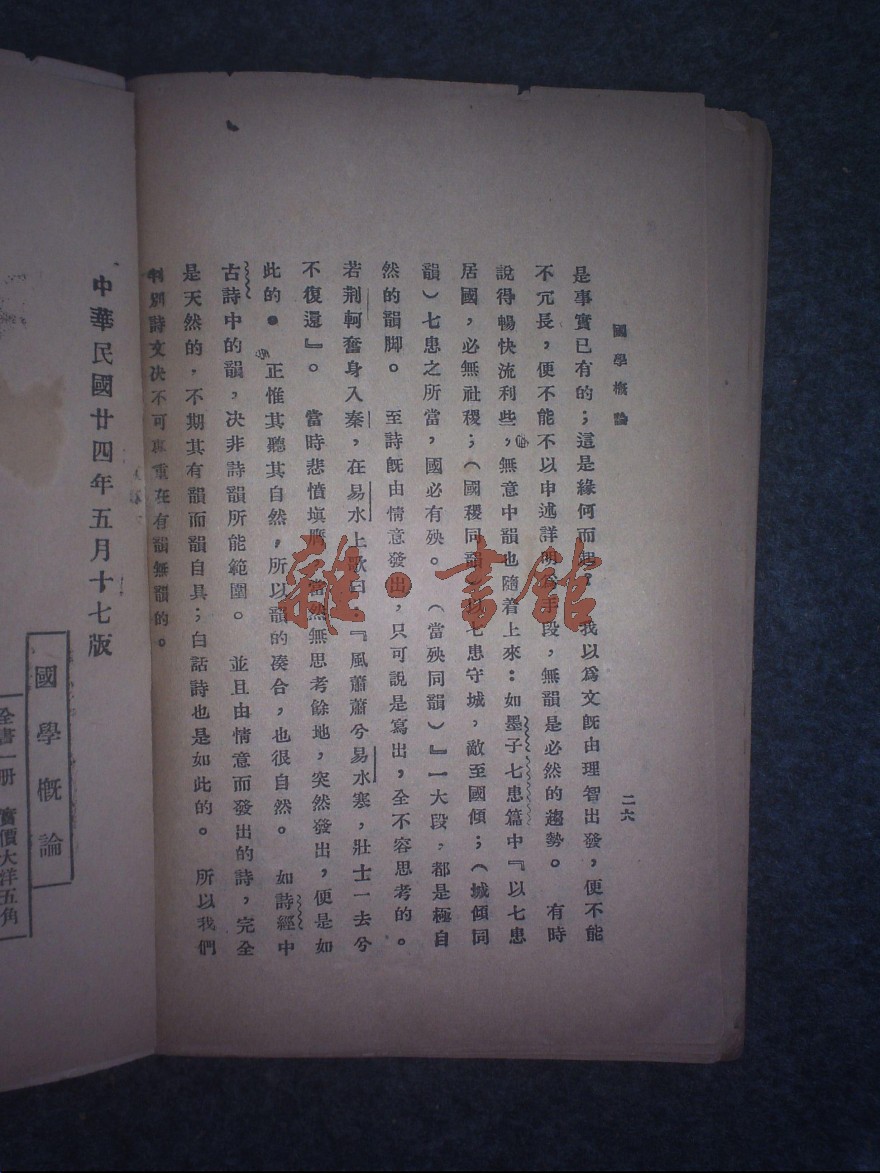 國學概論
二六
是事實已有的；這是緣何而起？　我以爲文旣由理智出發，便不能
不冗長，便不能不以申述詳明爲手段，無韻是必然的趨勢。　有時
說得暢快流利些，無意中韻也隨着上來：如墨子七患篇中『以七患
居國，必無社稷；（國稷同韻）以七患守城，敵至國傾；（城傾同
韻）七患之所當，國必有殃。　（當殃同韻）』一大段，都是極自
然的韻脚。　至詩旣由情意發出，只可說是寫出，全不容思考的。
若荆軻奮身入秦，在易水上歌曰：『風蕭蕭兮易水寒，壯士一去兮
不復還』。　當時悲憤塡膺，當然無思考餘地，突然發出，便是如
此的。　正惟其聽其自然，所以韻的凑合，也很自然。　如詩經中
古詩中的韻，决非詩韻所能範圍。　並且由情意而發出的詩，完全
是天然的，不期其有韻而韻自具；白話詩也是如此的。　所以我們
判別詩文决不可專重在有韻無韻的。
中華民國廿四年五月十七版
國學概論
全書一册　實價大洋五角
雜·書館